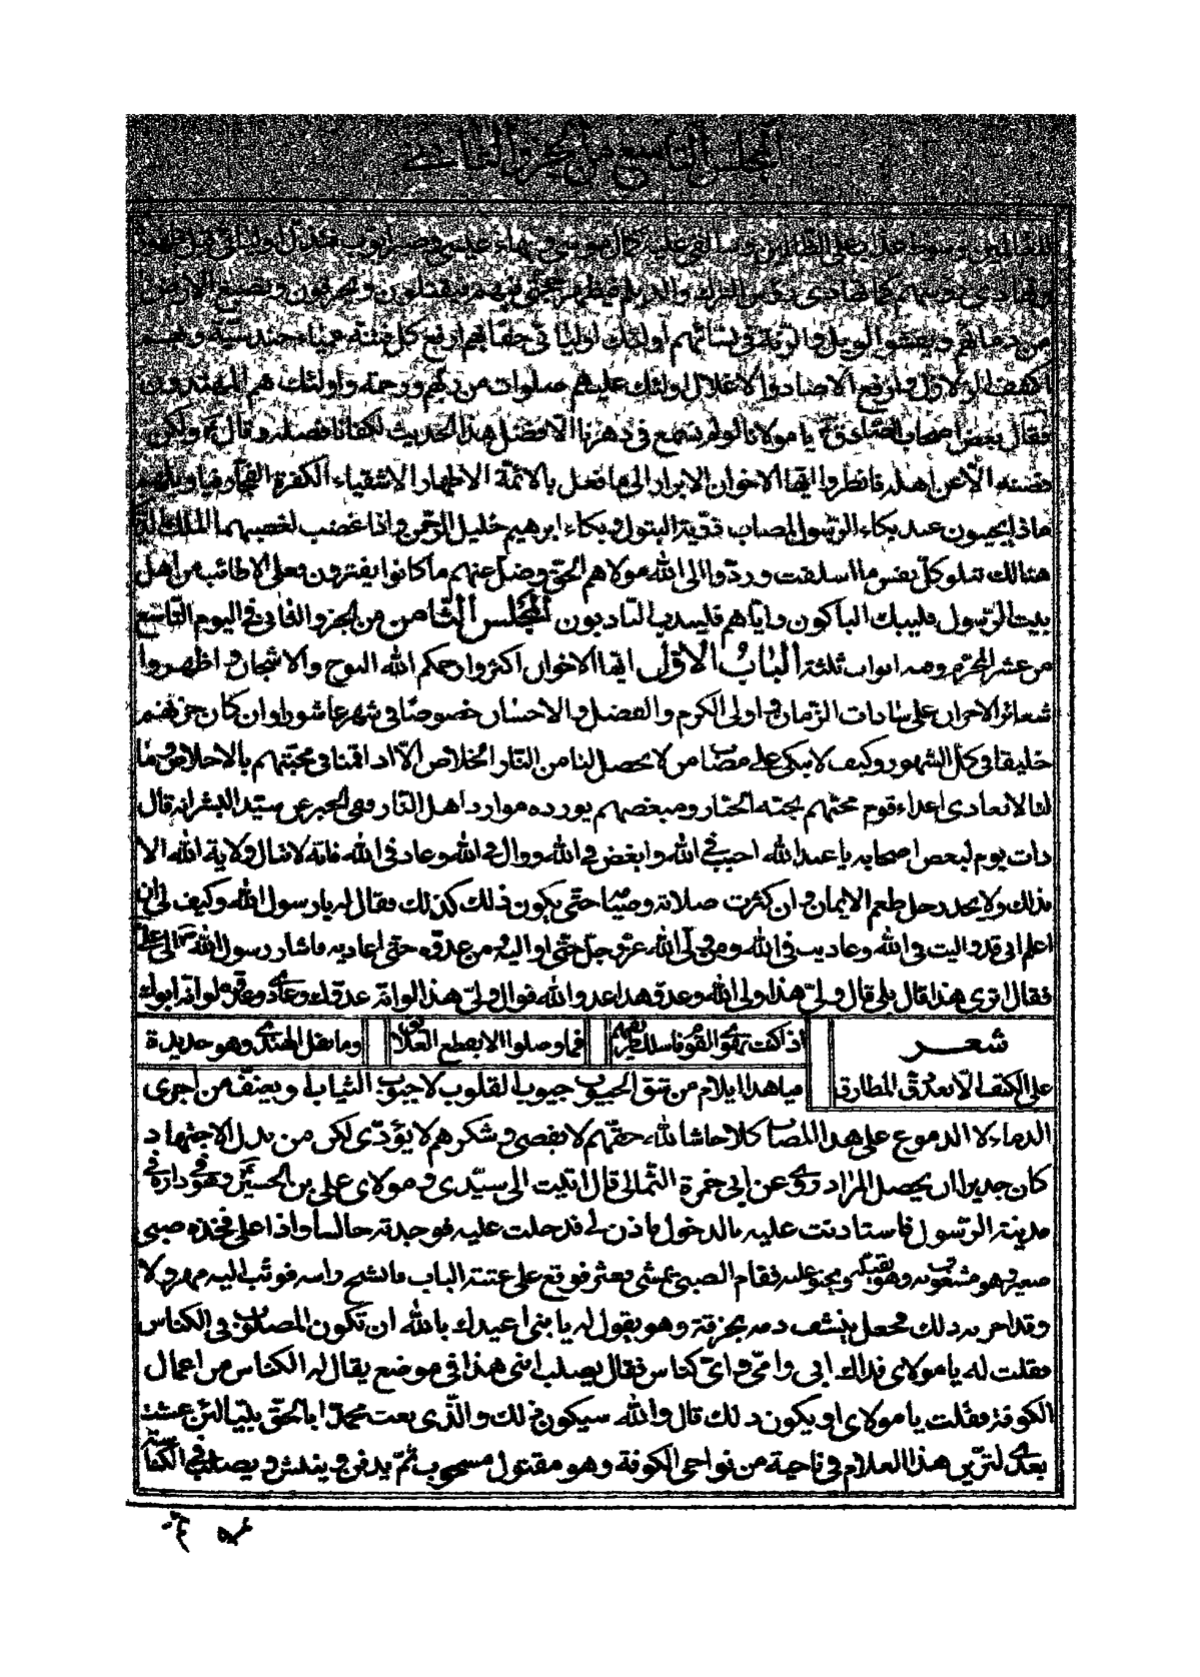 المجلس التاسع من الجزو الثاني
للعالمين وسوط عذاب على الظالمين
من دمائهم ويفشو الويل والرنة في نسائهم اولئك اوليائي حقا بهم ارفع كل فتنة عمياء حندسية وبهم
اكشف الزلازل وارفع الاصار والاغلال اولئك عليهم صلوات من ربهم ورحمة واولئك هم المهتدون
فقال بعض اصحاب الصادق ع يا مولانا لو لم نسمع في دهرنا الا فضل هذا الحديث لكفانا فضله وقال ع ولكن
فصنه الا عن اهله فانظروا ايها الاخوان الابرار الى ما فعل بالائمة الاطهار الاشقياء الكفرة الفجار فيا ويلهم
ماذا يجيبون عند بكاء الرسول المصاب فذرية البتول وبكاء ابرهيم خليل الرحمن واذا غضب لغضبهما الملك
هنالك تبلو كل نفس ما اسلفت وردوا الى الله مولاهم الحق وضل عنهم ما كانوا يفترون فعلى الاطائب من اهل
بيت الرسول فليبك الباكون واياهم فليندب النادبون المجلس الثامن من الجزو الثاني في اليوم التاسع
من عشر المحرم وفيه ابواب ثلثة الباب الاول ايها الاخوان اكثروا رحمكم الله النوح والاشجان واظهروا
شعائر الاحزان على سادات الزمان واولى الكرم والفضل والاحسان خصوصا في شهر عاشورا وان كان حزنهم
خليقا في كل الشهور وكيف لا نبكي على مصاب من لا يحصل لنا من النار الخلاص الا اذا قمنا في محبتهم بالاخلاص وما
لنا لا نعادى اعداء قوم محبهم بجنة المختار ومبغضهم يورده موارد اهل النار وفي الخبر عن سيد البشر انه قال
ذات يوم لبعض اصحابه يا عبد الله احبب في الله وابغض في الله ووال في الله وعاد في الله فانه لا تنال ولاية الله الا
بذلك ولا يجد رجل طعم الايمان وان كثرت صلاته وصيامه حتى يكون ذلك كذلك فقال له يا رسول الله وكيف لي ان
اعلم انى قد واليت في الله وعاديت في الله ومن ولى الله عز وجل حتى اواليه ومن عدوه حتى اعاديه فاشار رسول الله ص الى على ع
فقال اترى هذا قال بلى قال ولى هذا ولى الله وعدو هذا عدو الله فوال ولى هذا لو انه عدوك وعاد عدوه لو انه ابوك
شعر
اذا كنت تهوى القوم فاسلك طريقهم
فما وصلوا الا بقطع العلائق
وما نقل الهندى وهو حديدة
على الكتف الا بعد دق المطارق
فيا هذا ايلام من شق الحبيب جيوب القلوب لا جيوب الثياب ويعنف من اجرى
الدماء لا الدموع على هذا المصاب كلا حاشا لله حقهم لا يقضى وشكرهم لا يؤدى لكن من بذل الاجتهاد
كان جديرا ان يحصل المراد وروى عن ابى حمزة الثمالى قال اتيت الى سيدى ومولاى على بن الحسين ع وهو في داره في
مدينة الرسول فاستاذنت عليه بالدخول فاذن لى فدخلت عليه فوجدته جالسا واذا على فخذه صبى
صغير وهو مشغوف به وهو يقبله ويحنو عليه فقام الصبى يمشى فعثر فوقع على عتبة الباب فانشج راسه فوثب اليه مهرولا
وقد احزنه ذلك فجعل ينشف دمه بخرقة وهو يقول له يا بنى اعيذك بالله ان تكون المصلوب في الكناس
فقلت له يا مولاى فداك ابى وامى واى كناس فقال يصلب ابنى هذا في موضع يقال له الكناس من اعمال
الكوفة فقلت يا مولاى او يكون ذلك قال والله سيكون ذلك والذى بعث محمدا بالحق نبيا لئن عشت
بعدى لترين هذا الغلام في ناحية من نواحى الكوفة وهو مقتول مسحوب ثم يدفن وينبش ويصلب في الكناسة